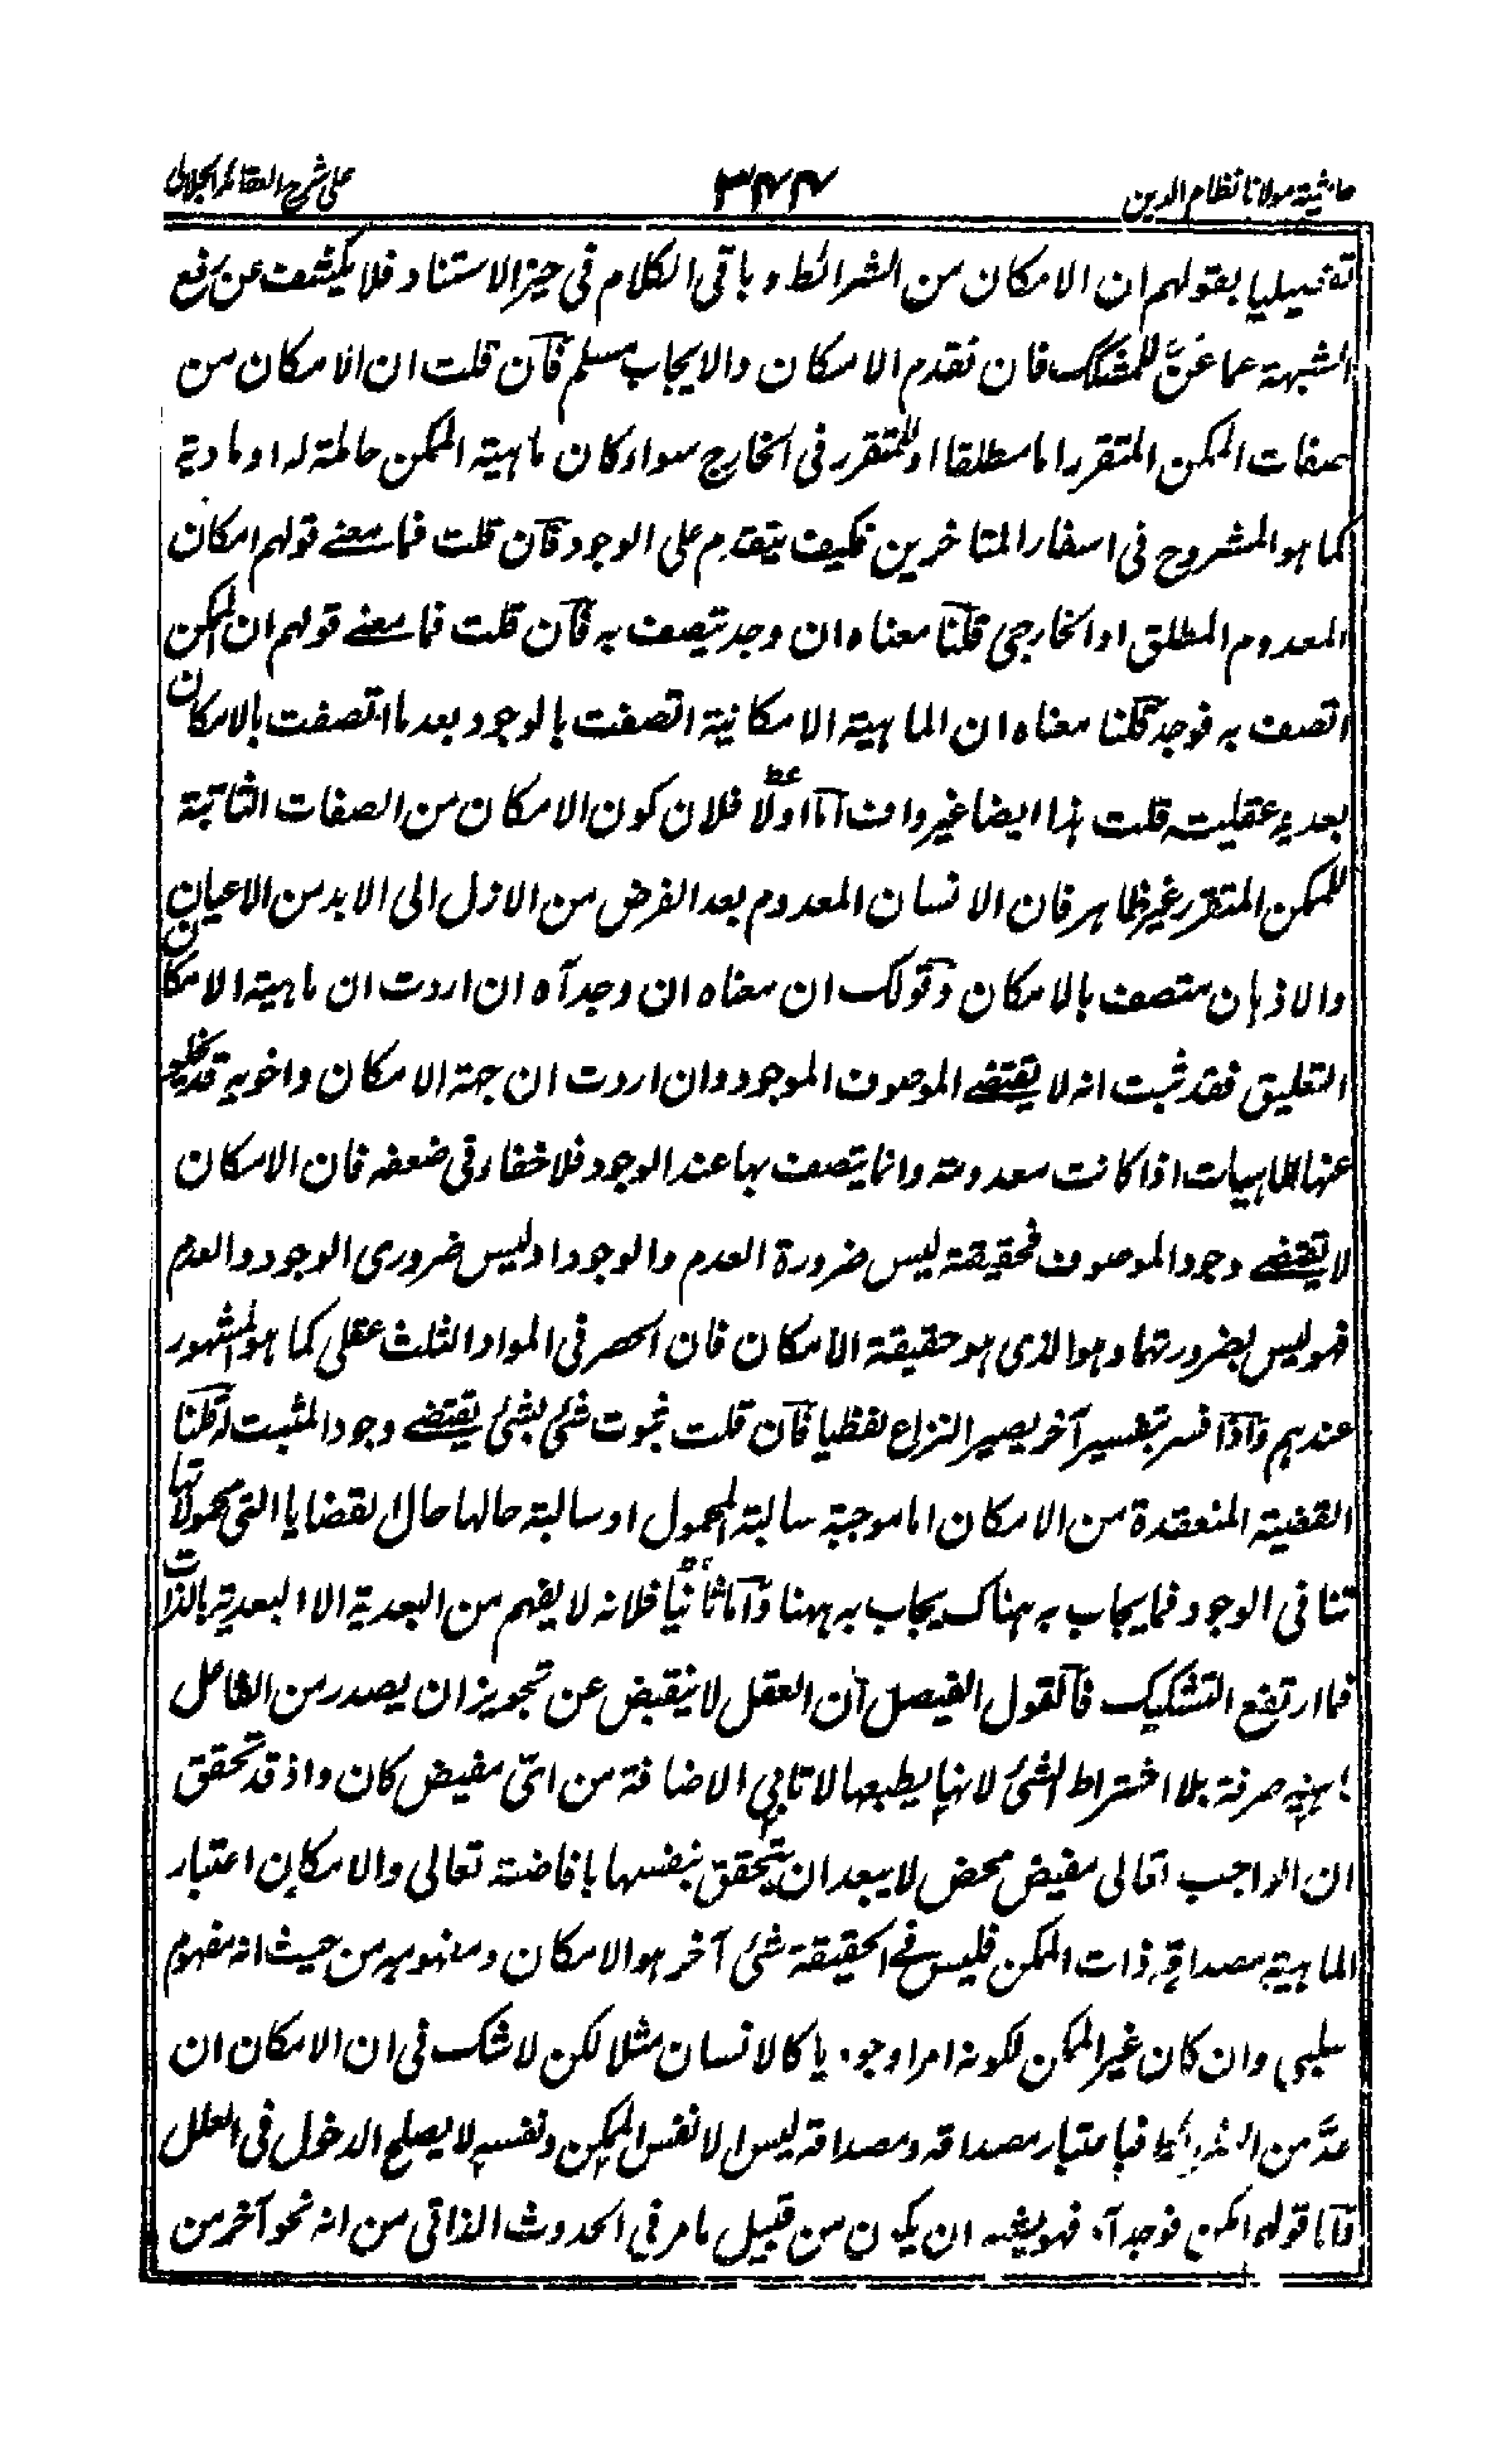 حاشية مولانا نظام الدين
۳۴۴
على شرح العقائد الجلالى
تفصيليا بقولهم ان الامكان من الشرائط و باقى الكلام فى حيز الاستناد فلا يكشف عن رفع
الشبهة عما عنّ للمشكك فان تقدم الامكان والايجاب مسلم فان قلت ان الامكان من
صفات الممكن المتقرر اما مطلقا او المتقرر فى الخارج سواء كان ماهية الممكن حاملة له او مادية
كما هو المشروح فى اسفار المتاخرين فكيف يتقدم على الوجود فان قلت فما معنے قولهم امكان
المعدوم المطلق او الخارجى قلنا معناه ان وجد يتصف به فان قلت فما معنے قولهم ان الممكن
اتصف به فوجد قلنا معناه ان الماهية الامكانية اتصفت بالوجود بعد ما اتصفت بالامكان
بعدية عقلية قلت هذا ايضا غير واف اما اولا فلان كون الامكان من الصفات الثابتة
للممكن المتقرر غير ظاهر فان الانسان المعدوم بعد الفرض من الازل الى الابد من الاعيان
والاذهان متصف بالامكان وقولك ان معناه ان وجد آه ان اردت ان ماهية الامكان
التعليق فقد ثبت انه لا يقتضے الموصوف الموجود وان اردت ان جهة الامكان واخويه قد يخلو
عنها الماهيات اذا كانت معدومة وانما يتصف بها عند الوجود فلا خفاء فى ضعفه فان الامكان
لا يقتضے وجود الموصوف فحقيقته ليس ضرورة العدم والوجود او ليس ضرورى الوجود والعدم
فهو ليس بضرورتهما وهو الذى هو حقيقة الامكان فان الحصر فى المواد الثلث عقلى كما هو المشهور
عندهم واذا فسر بتفسير آخر يصير النزاع لفظيا فان قلت ثبوت شئ لشئ يقتضے وجود المثبت له قلنا
القضية المنعقدة من الامكان اما موجبة سالبة المحمول او سالبة حالها حال القضايا التى محمولاتها
تنافى الوجود فما يجاب به هناك يجاب به ههنا واما ثانيا فلانه لا يفهم من البعدية الا البعدية بالذات
فما ارتفع التشكيك فالقول الفيصل ان العقل لا ينقبض عن تجويز ان يصدر من الفاعل
ماهية صرفة بلا اشتراط الشئ لانها بطبعها لا تابى الاضافة من اىّ مفيض كان واذ قد تحقق
ان الواجب تعالى مفيض محض لا يبعد ان يتحقق بنفسها بافاضته تعالى والامكان اعتبار
الماهية مصداقه ذات الممكن فليس فى الحقيقة شئ آخر هو الامكان ومفهومه من حيث انه مفهوم
سلبى وان كان غير الممكن لكونه امرا وجوديا كالانسان مثلا لكن لا شك فى ان الامكان ان
عدّ من الشرائط فباعتبار مصداقه ومصداقه ليس الا نفس الممكن ونفسه لا يصلح الدخول فى العلل
فاما قوله امكن فوجد آه فهو يشبه ان يكون من قبيل ما مر فى الحدوث الذاتى من انه نحو آخر من